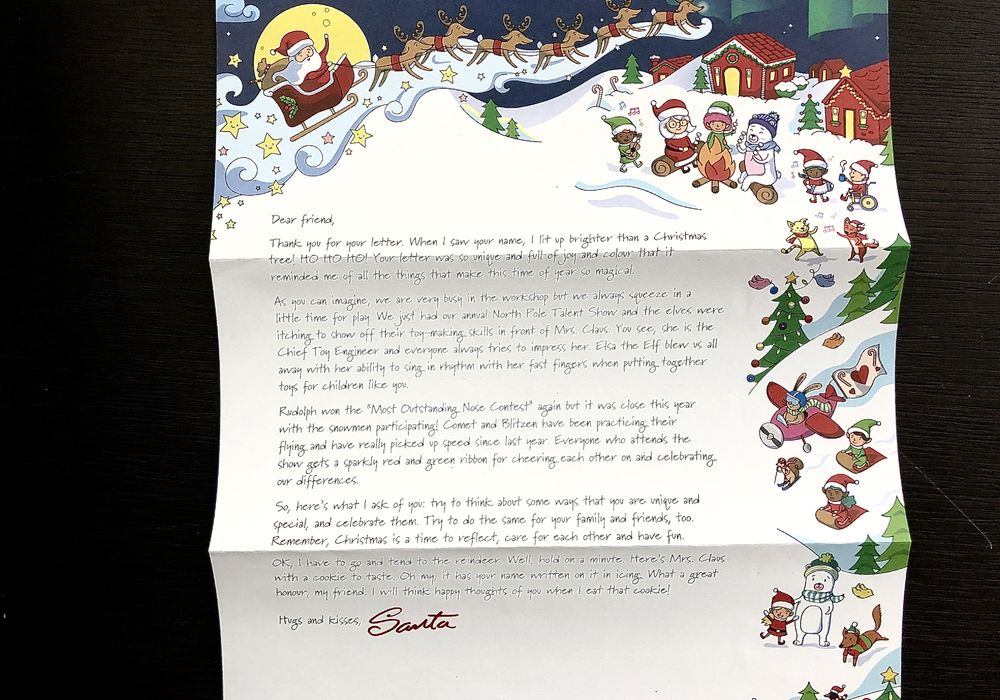 Dear friend,
Thank you for your letter. When I saw your name, I lit up brighter than a Christmas
tree! HO HO HO! Your letter was so unique and full of joy and colour that it
reminded me of all the things that make this time of year so magical.
As you can imagine, we are very busy in the workshop but we always squeeze in a
little time for play. We just had our annual North Pole Talent Show and the elves were
itching to show off their toy-making skills in front of Mrs. Claus. You see, she is the
Chief Toy Engineer and everyone always tries to impress her. Elsa the Elf blew us all
away with her ability to sing in rhythm with her fast fingers when putting together
toys for children like you.
Rudolph won the "Most Outstanding Nose Contest" again but it was close this year
with the snowmen participating! Comet and Blitzen have been practicing their
flying and have really picked up speed since last year. Everyone who attends the
show gets a sparkly red and green ribbon for cheering each other on and celebrating
our differences.
So, here's what I ask of you: try to think about some ways that you are unique and
special, and celebrate them. Try to do the same for your family and friends, too.
Remember, Christmas is a time to reflect, care for each other and have fun.
OK, I have to go and tend to the reindeer. Well, hold on a minute. Here's Mrs. Claus
with a cookie to taste. Oh my, it has your name written on it in icing. What a great
honour, my friend. I will think happy thoughts of you when I eat that cookie!
Hugs and kisses, Santa